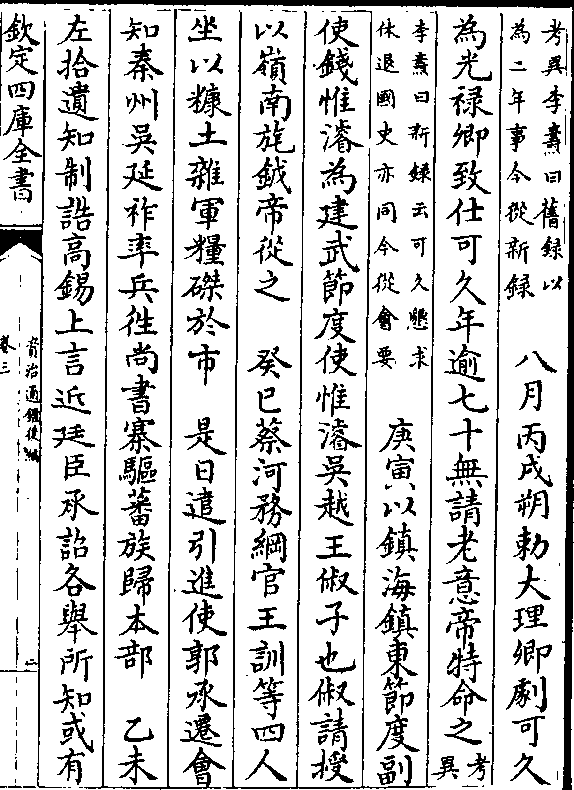 考異李燾曰舊録以
為二年事今從新録
八月丙戌朔勅大理卿劇可久
為光禄卿致仕可久年逾七十無請老意帝特命之
考異
李燾曰新録云可久懇求
休退國史亦同今從會要
庚寅以鎮海鎮東節度副
使錢惟濬為建武節度使惟濬吳越王俶子也俶請授
以嶺南旄鉞帝從之 癸巳蔡河務綱官王訓等四人
坐以糠土雜軍糧磔於市 是日遣引進使郭承遷會
知秦州吳延祚率兵徃尚書寨驅蕃族歸本部 乙未
左拾遺知制誥高錫上言近廷臣承詔各舉所知或有
欽定四庫全書
資治通鑑後編
卷三
二